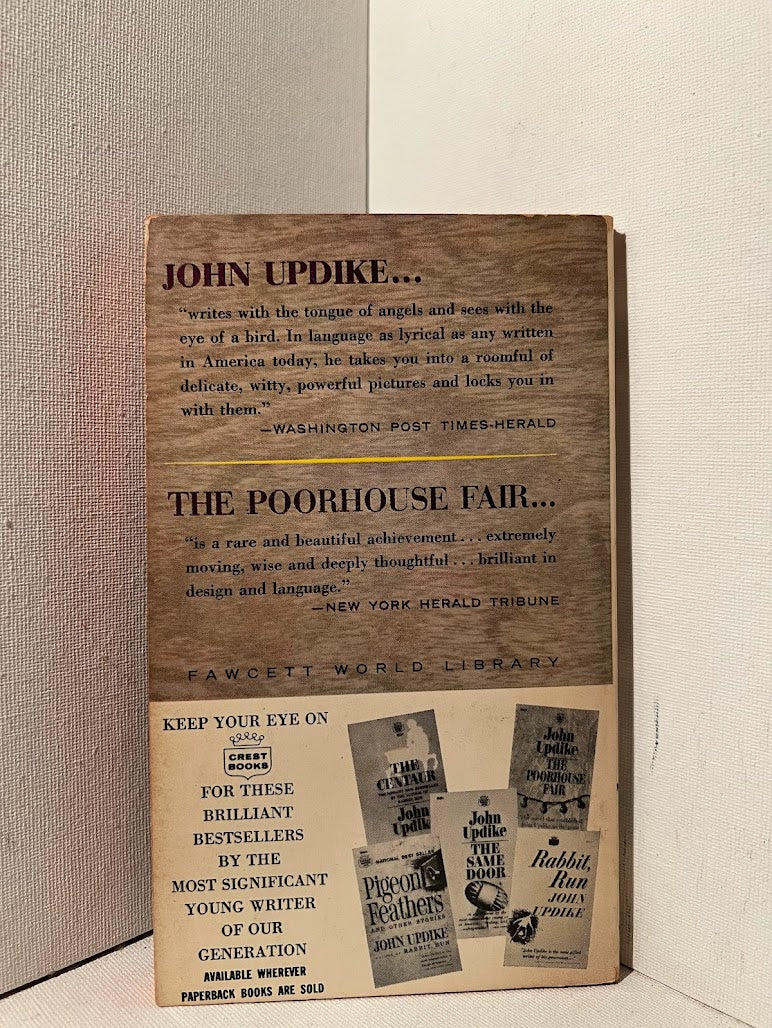 JOHN UPDIKE...
“writes with the tongue of angels and sees with the
eye of a bird. In language as lyrical as any written
in America today, he takes you into a roomful of
delicate, witty, powerful pictures and locks you in
with them.”
—WASHINGTON POST TIMES-HERALD
THE POORHOUSE FAIR...
“is a rare and beautiful achievement... extremely
moving, wise and deeply thoughtful... brilliant in
design and language.”
—NEW YORK HERALD TRIBUNE
FAWCETT WORLD LIBRARY
KEEP YOUR EYE ON
CREST
BOOKS
FOR THESE
BRILLIANT
BESTSELLERS
BY THE
MOST SIGNIFICANT
YOUNG WRITER
OF OUR
GENERATION
AVAILABLE WHEREVER
PAPERBACK BOOKS ARE SOLD
THE
CENTAUR
John
Updike
John
Updike
THE
POORHOUSE
FAIR
John
Updike
THE
SAME
DOOR
NATIONAL BEST SELLER
Pigeon
Feathers
AND OTHER STORIES
JOHN UPDIKE
AUTHOR OF RABBIT, RUN
Rabbit,
Run
JOHN
UPDIKE
"John Updike is the most gifted
writer of his generation..."